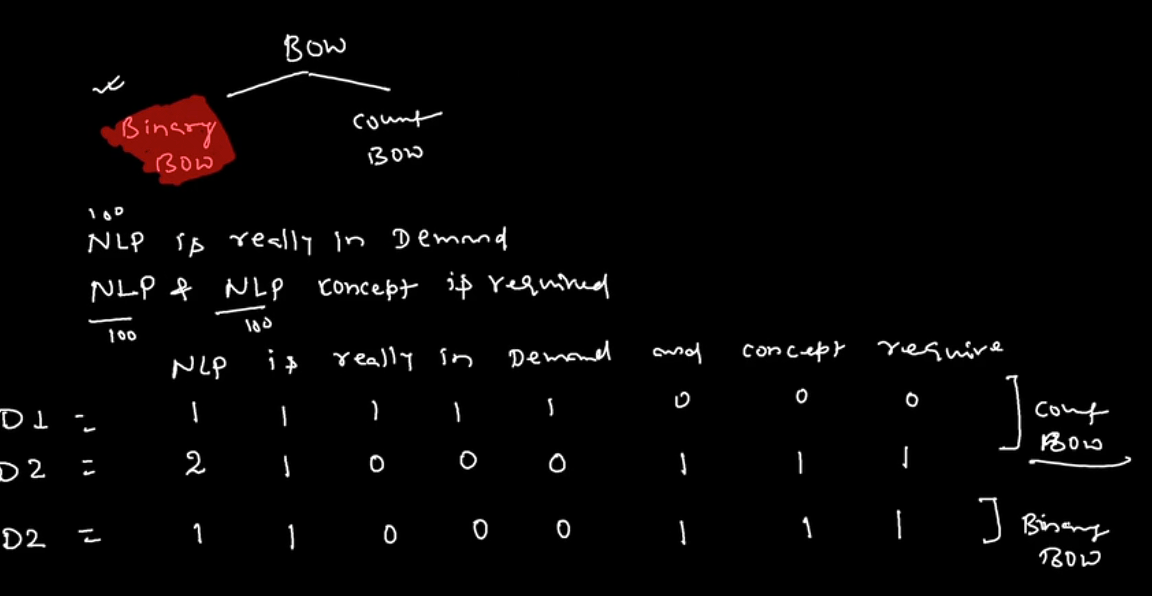 BOW
Binary
BOW
Count
BOW
100
NLP is really in Demand
NLP & NLP concept is required
100 100
NLP is really in Demand and concept require
D1 = 1 1 1 1 1 0 0 0
Count
BOW
D2 = 2 1 0 0 0 1 1 1
D2 = 1 1 0 0 0 1 1 1
Binary
BOW